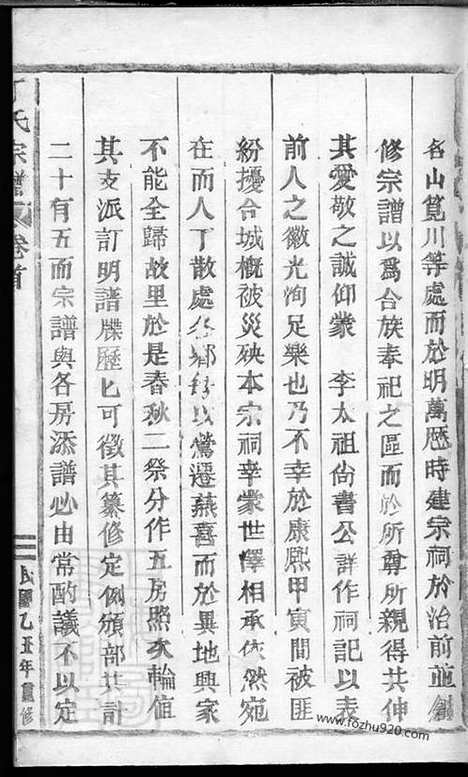 各山筧川等處而於明萬歷時建宗祠於治前並創
修宗譜以爲合族奉祀之區而於所尊所親得共伸
其愛敬之誠仰蒙　李太祖尚書公詳作祠記以表
前人之徽光洵足樂也乃不幸於康熙甲寅間被匪
紛擾合城概被災殃本宗祠幸蒙世澤相承依然宛
在而人丁散處各鄉 以鶯遷燕喜而於異地興家
不能全歸故里於是春秋二祭分作五房照次輪值
其支派訂明譜牒歷匕可徵其纂修定例頒部共計
二十有五而宗譜與各房添譜必由常酌議不以定
丁氏宗譜 卷首
民國乙丑年重修
www.fozhu920.com